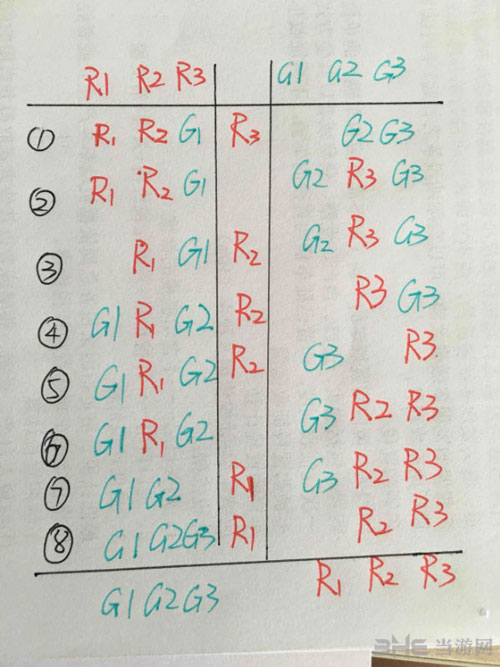 R1 R2 R3 G1 G2 G3
① R1 R2 G1 R3 G2 G3
② R1 R2 G1 G2 R3 G3
③ R1 G1 R2 G2 R3 G3
④ G1 R1 G2 R2 R3 G3
⑤ G1 R1 G2 R2 G3 R3
⑥ G1 R1 G2 G3 R2 R3
⑦ G1 G2 R1 G3 R2 R3
⑧ G1 G2 G3 R1 R2 R3
G1 G2 G3 R1 R2 R3
3HE 当游网